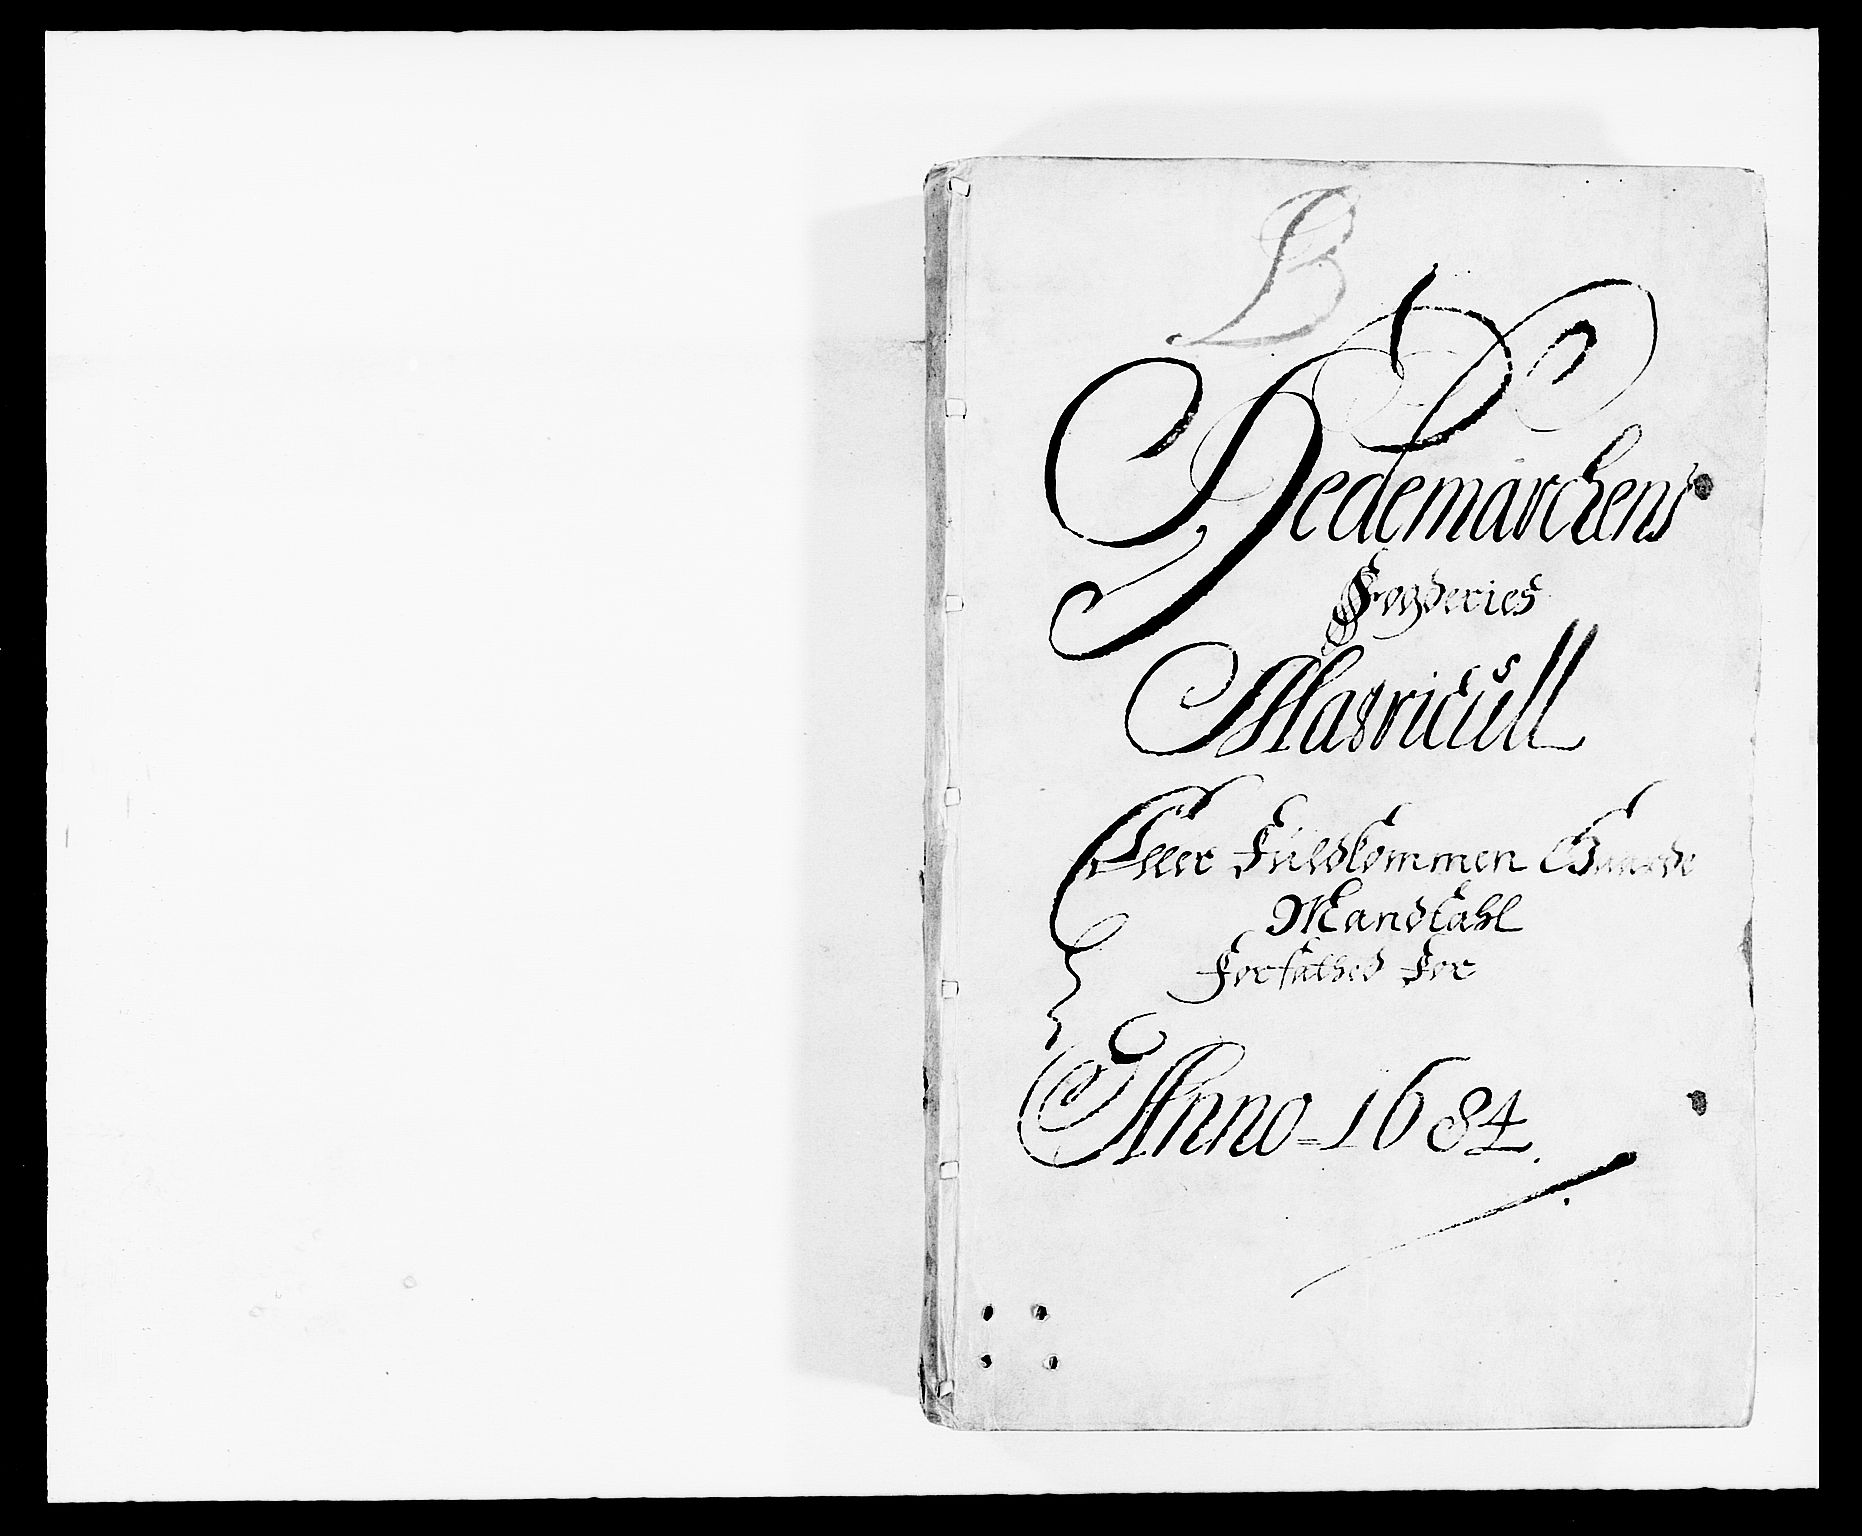 B
Hedemarchens
Fogderies
Matricull
Eller Fuldkommen Gaarde
Mandtahl
Forfatted For
Anno 1684.